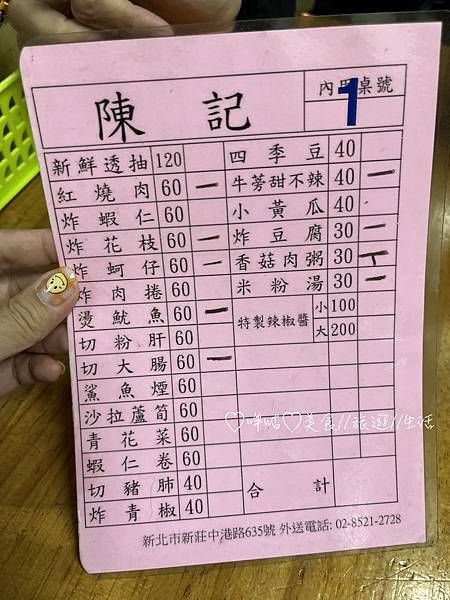 陳記
內用桌號
1
新鮮透抽 120
紅燒肉 60 一
炸蝦仁 60
炸花枝 60 一
炸蚵仔 60 一
炸肉捲 60
燙魷魚 60 一
切粉肝 60
切大腸 60 一
鯊魚煙 60
沙拉蘆筍 60
青花菜 60
蝦仁卷 60
切豬肺 40
炸青椒 40
四季豆 40
牛蒡甜不辣 40 一
小黃瓜 40
炸豆腐 30 一
香菇肉粥 30 丅
米粉湯 30 一
特製辣椒醬 小 100
大 200
合計
新北市新莊中港路635號 外送電話: 02-8521-2728
♡咩咕♡美食//旅遊//生活